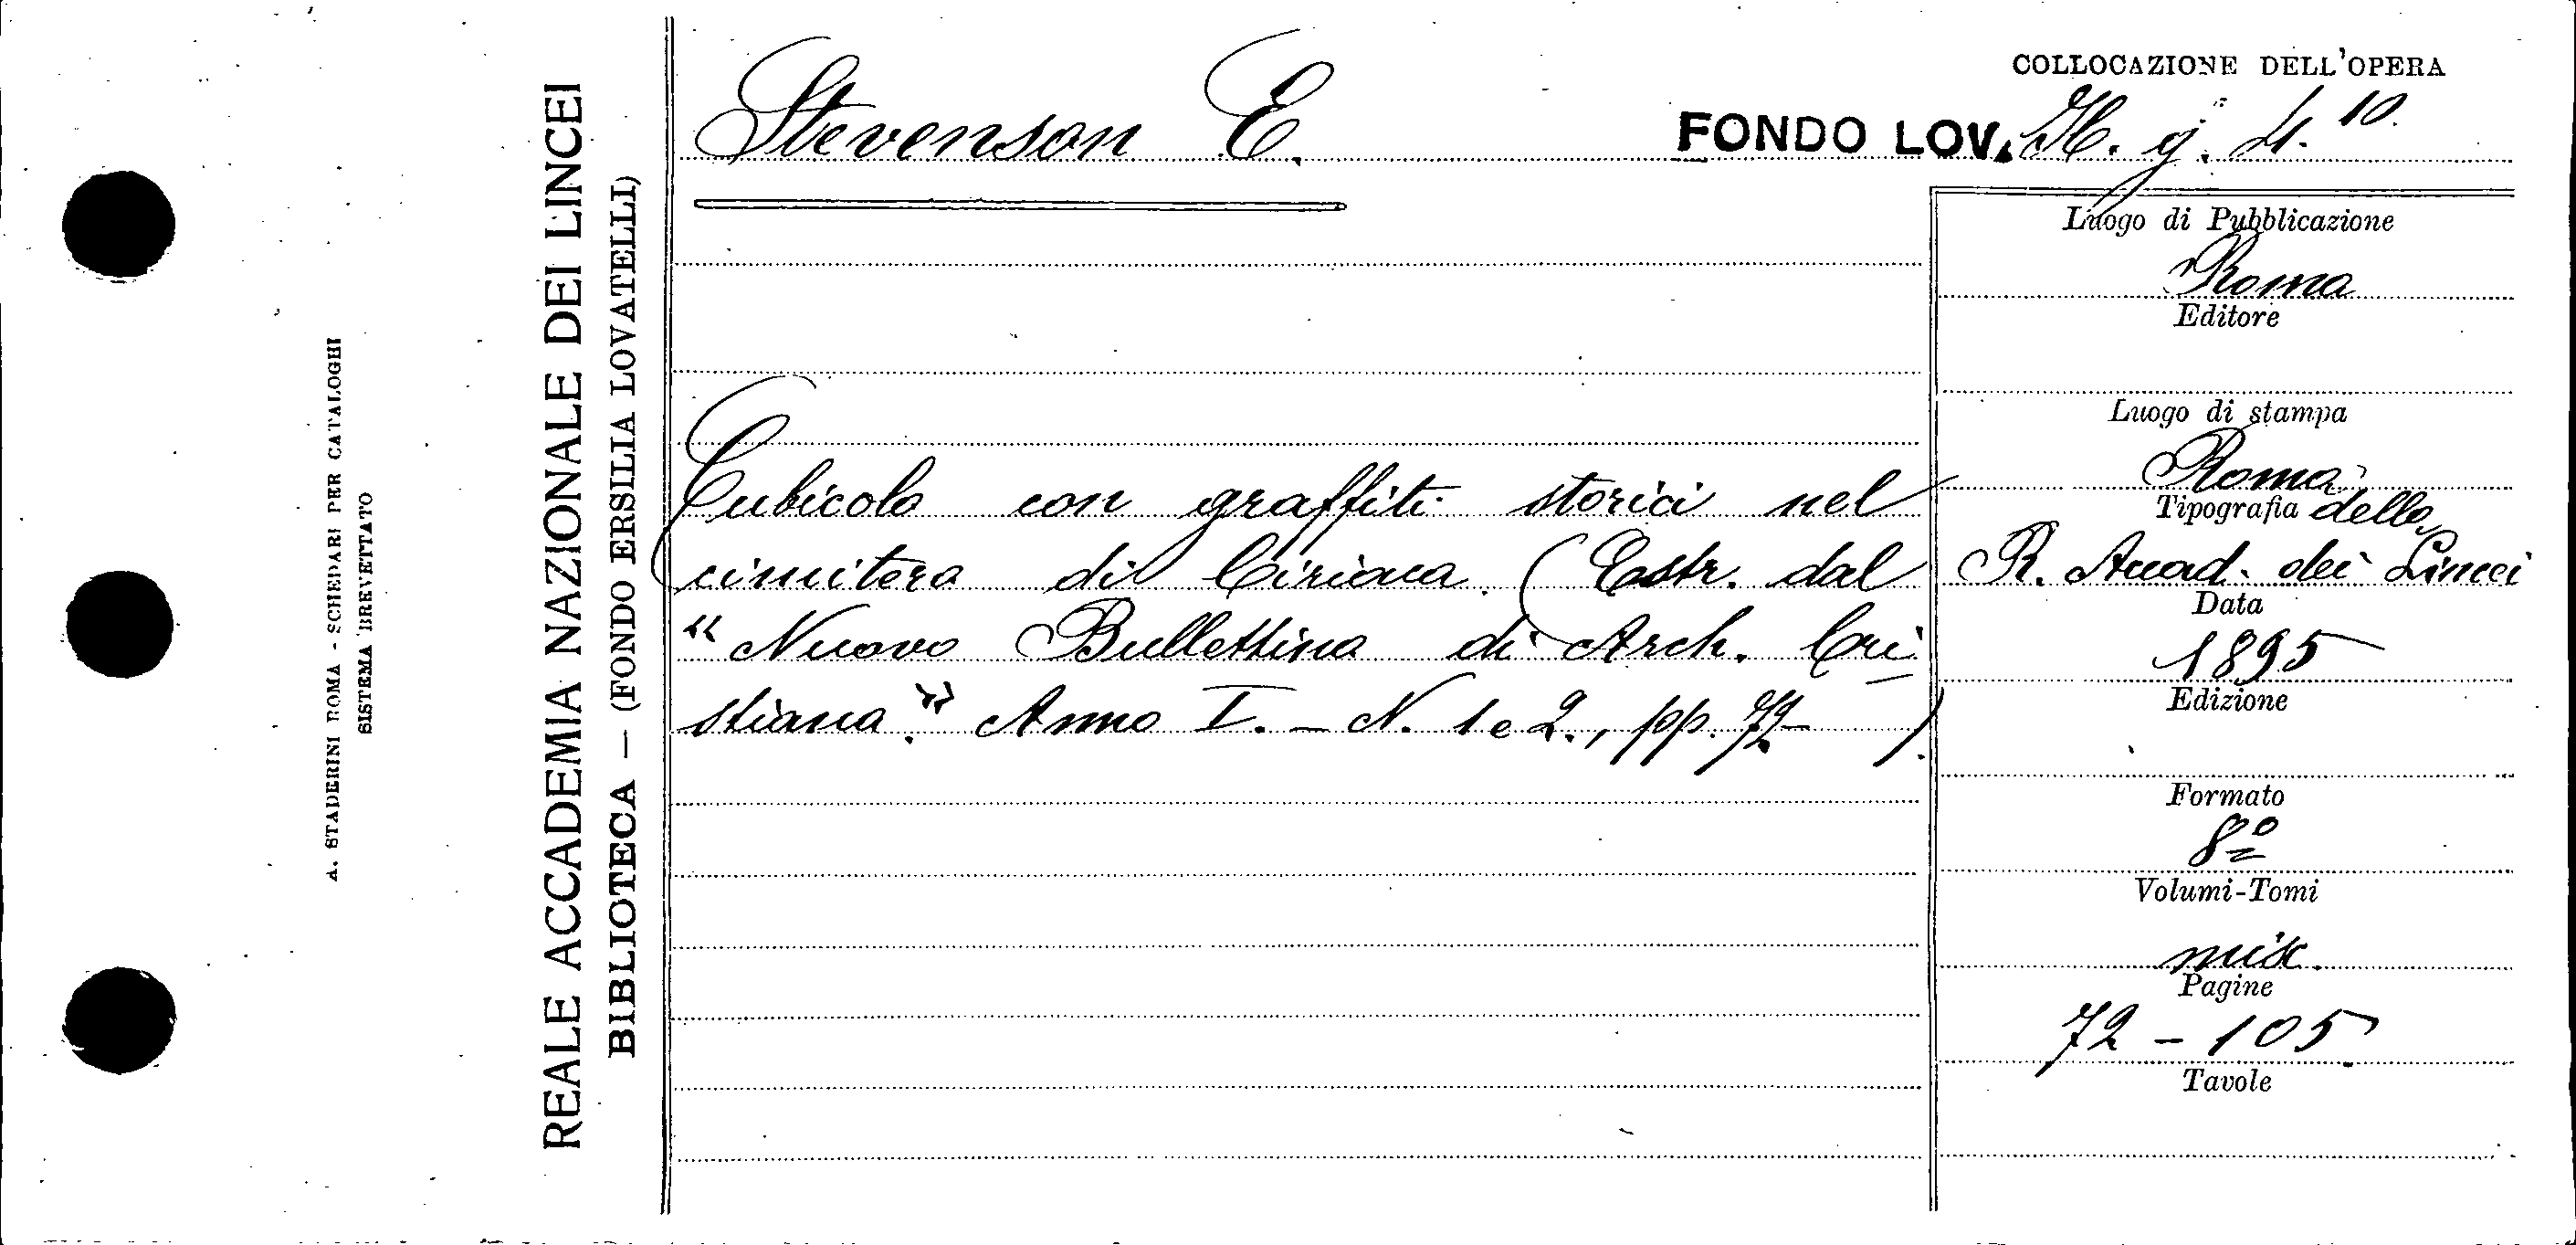 A. STADERINI ROMA - SCHEDARI PER CATALOGHI
SISTEMA BREVETTATO
REALE ACCADEMIA NAZIONALE DEI LINCEI
BIBLIOTECA — (FONDO ERSILIA LOVATELLI)
Stevenson E.
Cubicolo con graffiti storici nel
cimitero di Ciriaca. (Estr. dal
"Nuovo Bullettino di Arch. Cri
stiana." Anno I. - N. 1 e 2., pp. 72- ).
COLLOCAZIONE DELL'OPERA
FONDO LOV. H. g. 4. 10.
Luogo di Pubblicazione
Roma
Editore
Luogo di stampa
Roma
Tipografia della
R. Accad. dei Lincei
Data
1895
Edizione
Formato
8º
Volumi-Tomi
Pagine
72 - 105
Tavole